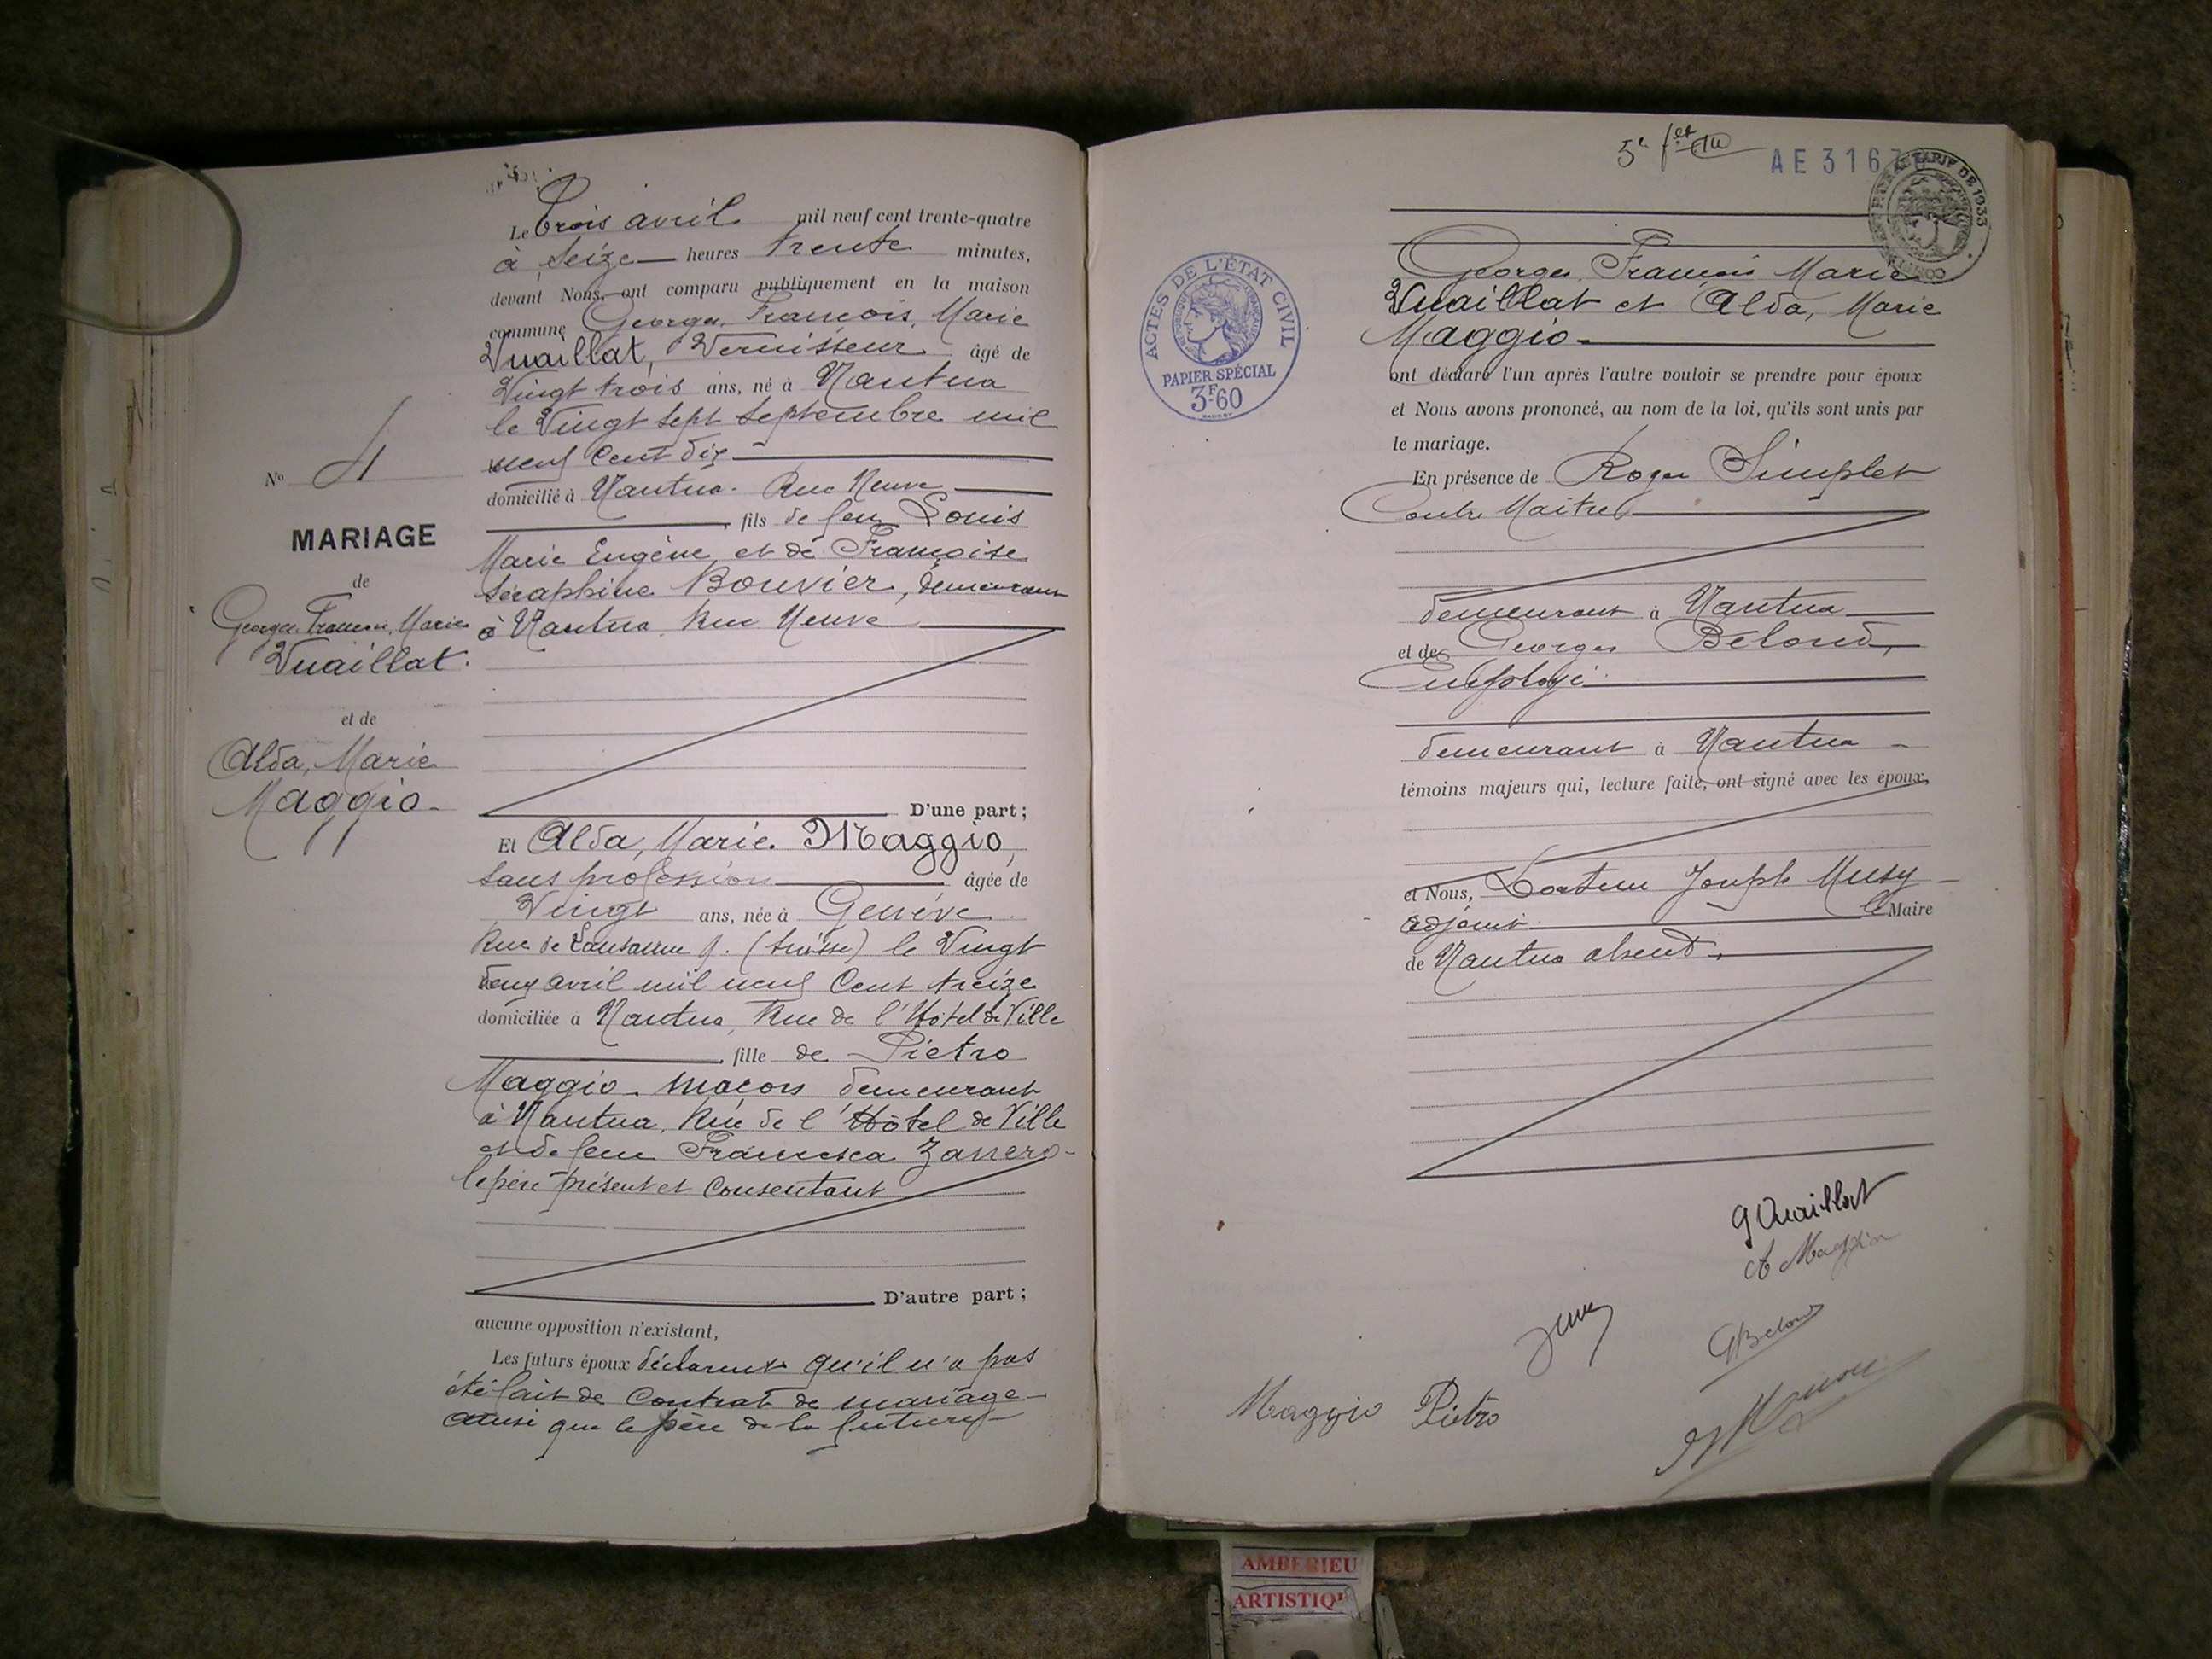 Le Trois avril mil neuf cent trente-quatre
à Seize heures trente minutes,
devant Nous, ont comparu publiquement en la maison
commune Georges, François, Marie
Vuaillat, Vernisseur âgé de
Vingt trois ans, né à Nantua
le Vingt sept septembre mil
neuf Cent dix
domicilié à Nantua. Rue Neuve
, fils de feu Louis
Marie Eugène et de Françoise
Séraphine Bouvier, demeurant
à Nantua, Rue Neuve
D'une part ;
Et Alda, Marie. Maggio,
sans profession âgée de
Vingt ans, née à Genève
Rue de Lausanne 9. (Suisse) le Vingt
deux avril mil neuf Cent treize
domiciliée à Nantua, Rue de l'Hôtel de Ville
, fille de Pietro
Maggio maçon demeurant
à Nantua, Rue de l'Hôtel de Ville
et de feue Francesca
le père présent et Consentant
D'autre part ;
aucune opposition n'existant,
Les futurs époux déclarent qu'il n'a pas
été fait de Contrat de mariage
ainsi que le père de la future
No 4
MARIAGE
de
Georges, François, Marie
Vuaillat.
et de
Alda, Marie
Maggio
ACTES DE L'ÉTAT CIVIL
PAPIER SPÉCIAL
3F.60
5e
AE 316
TARIF DE 1933
Georges, François Marie
Vuaillat et Alda, Marie
Maggio
ont déclaré l'un après l'autre vouloir se prendre pour époux
et Nous avons prononcé, au nom de la loi, qu'ils sont unis par
le mariage.
En présence de Roger Simplet
Contre Maître
demeurant à Nantua
et de Georges Belond,
Employé
demeurant à Nantua
témoins majeurs qui, lecture faite, ont signé avec les époux,
et Nous, Docteur Joseph Musy
adjoint le Maire
de Nantua absent.
G Vuaillat
A Maggio
GBelond
Maggio Pietro
AMBERIEU
ARTISTIQU